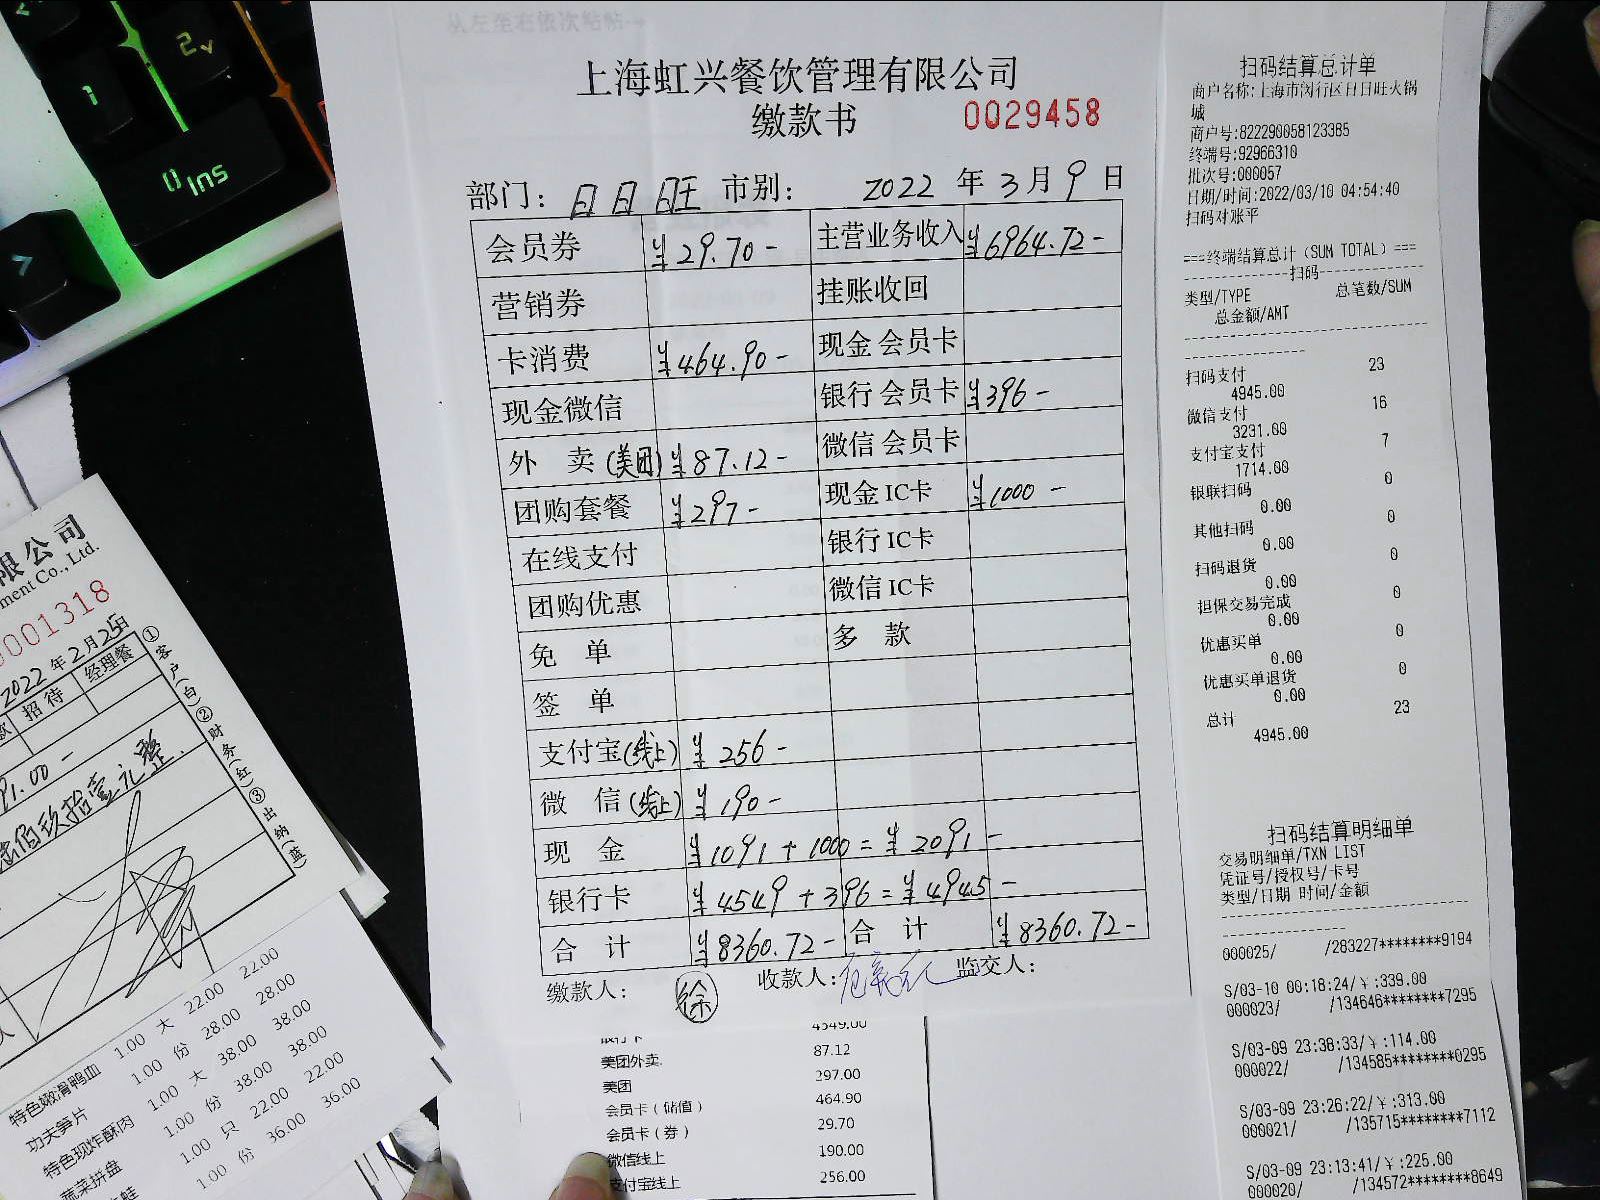 从左至右依次粘帖→
上海虹兴餐饮管理有限公司
缴款书 0029458
部门：日日旺 市别： 2022 年 3 月 9 日
会员券 ¥29.70- 主营业务收入 ¥6964.72-
营销券 挂账收回
卡消费 ¥464.90- 现金 会员卡
现金微信 银行 会员卡 ¥396-
外 卖(美团) ¥87.12- 微信 会员卡
团购套餐 ¥297- 现金 IC卡 ¥1000-
在线支付 银行 IC卡
团购优惠 微信 IC卡
免 单 多 款
签 单
支付宝(线上) ¥256-
微 信(线上) ¥190-
现 金 ¥1091+1000=¥2091-
银行卡 ¥4549+396=¥4945-
合 计 ¥8360.72- 合 计 ¥8360.72-
缴款人： 徐 收款人： 监交人：
银行卡 4549.00
美团外卖 87.12
美团 297.00
会员卡（储值） 464.90
会员卡（券） 29.70
微信线上 190.00
支付宝线上 256.00
扫码结算总计单
商户名称:上海市闵行区日日旺火锅
城
商户号:822290058123385
终端号:92966310
批次号:000057
日期/时间:2022/03/10 04:54:40
扫码对账平
===终端结算总计（SUM TOTAL）===
----------扫码----------
类型/TYPE 总笔数/SUM
总金额/AMT
扫码支付 23
4945.00
微信支付 16
3231.00
支付宝支付 7
1714.00
银联扫码 0
0.00
其他扫码 0
0.00
扫码退货 0
0.00
担保交易完成 0
0.00
优惠买单 0
0.00
优惠买单退货 0
0.00
总计 23
4945.00
扫码结算明细单
交易明细单/TXN LIST
凭证号/授权号/卡号
类型/日期 时间/金额
000025/ /283227********9194
S/03-10 00:18:24/¥:339.00
000023/ /134646********7295
S/03-09 23:38:33/¥:114.00
000022/ /134585********0295
S/03-09 23:26:22/¥:313.00
000021/ /135715********7112
S/03-09 23:13:41/¥:225.00
000020/ /134572********8649
限公司
ment Co., Ltd.
0001318
2022 年 2 月 25 日
款 招待 经理餐
91.00-
佰玖拾壹元整
①客户(白) ②财务(红) ③出纳(蓝)
人
特色嫩滑鸭血 1.00 大 22.00 22.00
功夫笋片 1.00 份 28.00 28.00
特色现炸酥肉 1.00 大 38.00 38.00
蔬菜拼盘 1.00 份 38.00 38.00
蛙 1.00 只 22.00 22.00
1.00 份 36.00 36.00
1
2
0 Ins